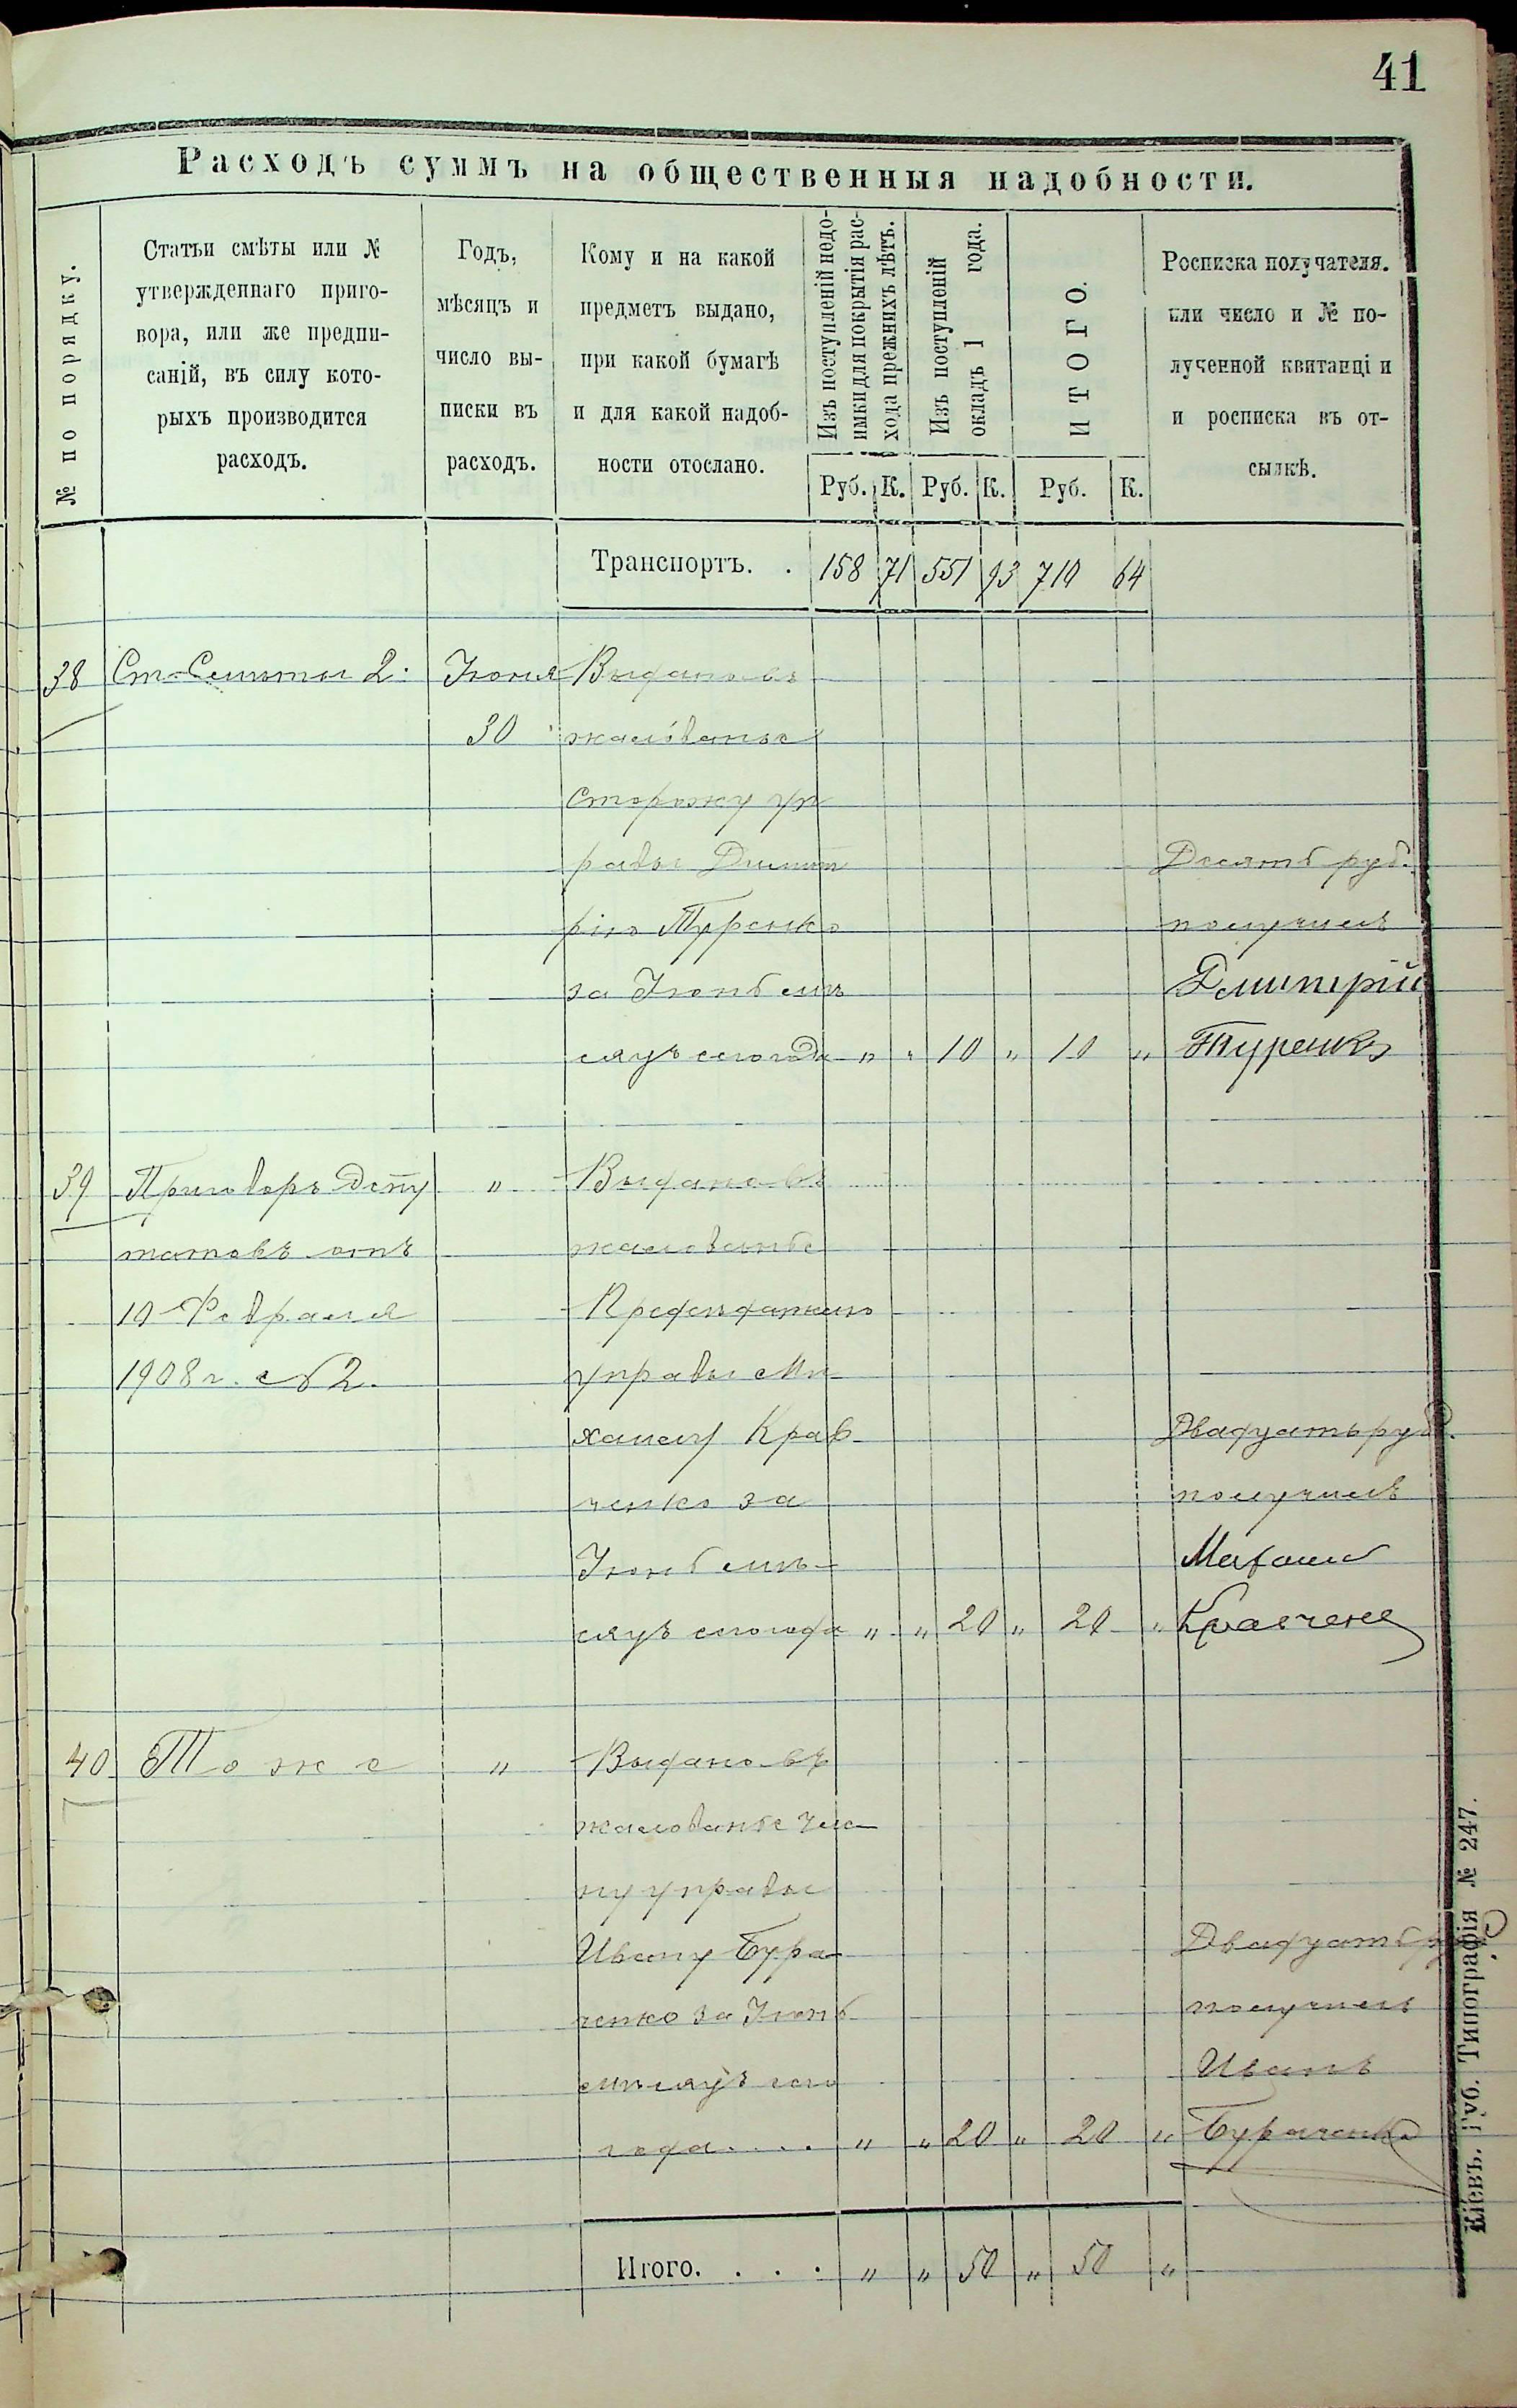 41
Расходъ суммъ на общественныя надобности.
№ по порядку.
Статьи смѣты или №
утвержденнаго приго-
вора, или же предпи-
саній, въ силу кото-
рыхъ производится
расходъ.
Годъ,
мѣсяцъ и
число вы-
писки въ
расходъ.
Кому и на какой
предметъ выдано,
при какой бумагѣ
и для какой надоб-
ности отослано.
Изъ поступленій недо-
имки для покрытія рас-
хода прежнихъ лѣтъ.
Изъ поступленій
окладъ 1 года.
ИТОГО.
Руб. К. Руб. К. Руб. К.
Росписка получателя.
или число и № по-
лученной квитанціи
и росписка въ от-
сылкѣ.
Транспортъ. . 158 71 551 93 710 64
38 Ст. Смѣты 2. Іюня Выдано въ
30 жалованье
сторожу уп
равы Димит
рію Туренко
за Іюнь мѣ
сяцъ сего года " " 10 " 10 "
Десять руб.
получилъ
Дмитрій
Туренко
39 Приговоръ депу " Выдано въ
татовъ отъ жалованье
10 Февраля Предсѣдателю
1908 г. № 2. управы Ми-
хаилу Крав-
ченко за
Іюнь мѣ-
сяцъ сего года " " 20 " 20 "
Двадцать руб.
получилъ
Кравченко
40 Тоже " Выдано въ
жалованье чле-
ну управы
Ивану Бура-
ченко за Іюнь
мѣсяцъ сего
года.... " " 20 " 20 "
Двадцать р
получилъ
Иванъ
Бураченко
Итого. . . . " " 50 " 50 "
Кіевъ. Губ. Типографія № 247.